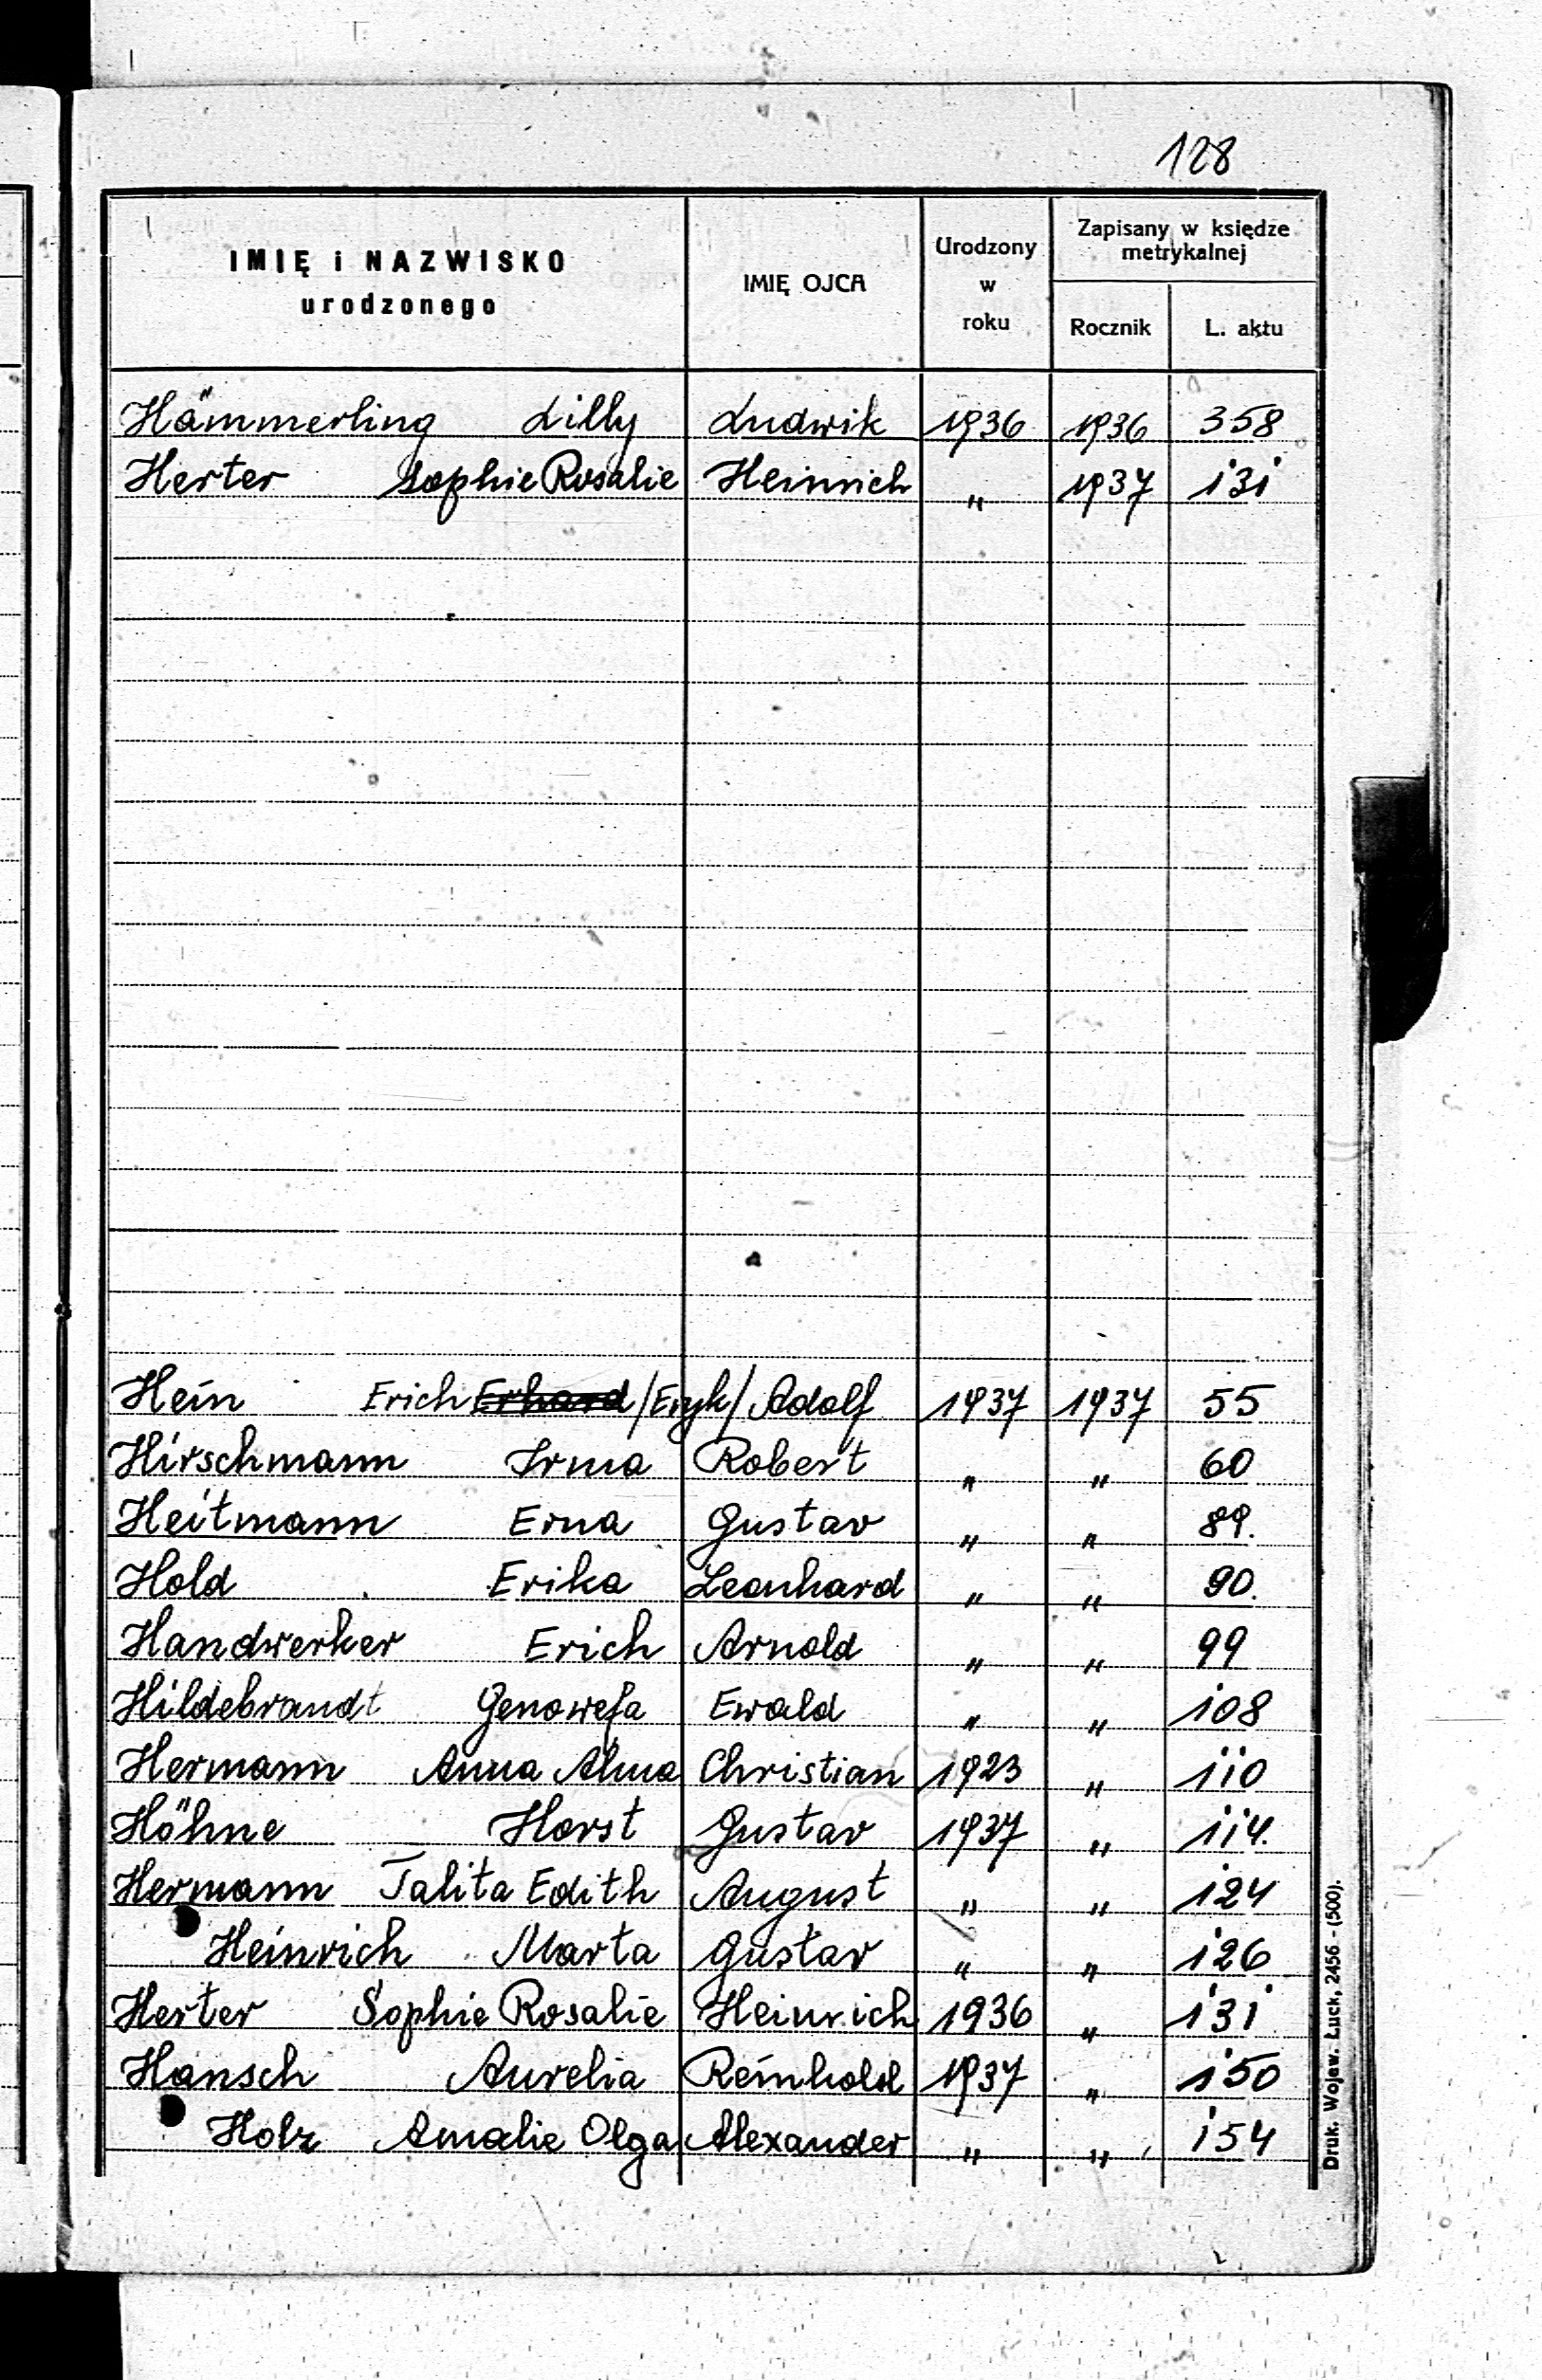 128
IMIĘ i NAZWISKO urodzonego IMIĘ OJCA Urodzony w roku Zapisany w księdze metrykalnej Rocznik L. aktu
Hämmerling Lilly Ludwik 1936 1936 358
Herter Sophie Rosalie Heinrich " 1937 131
Hein Erich Erhard /Eryk/ Adolf 1937 1937 55
Hirschmann Irma Robert " " 60
Heitmann Erna Gustav " " 89.
Hold Erika Leonhard " " 90.
Handwerker Erich Arnold " " 99
Hildebrandt Genowefa Ewald " " 108
Hermann Anna Alma Christian 1923 " 110
Höhne Horst Gustav 1937 " 114.
Hermann Talita Edith August " " 124
Heinrich Marta Gustav " " 126
Herter Sophie Rosalie Heinrich 1936 " 131
Hansch Aurelia Reinhold 1937 " 150
Holz Amalie Olga Alexander " " 154
Druk. Wojew. Łuck, 2456 - (500).